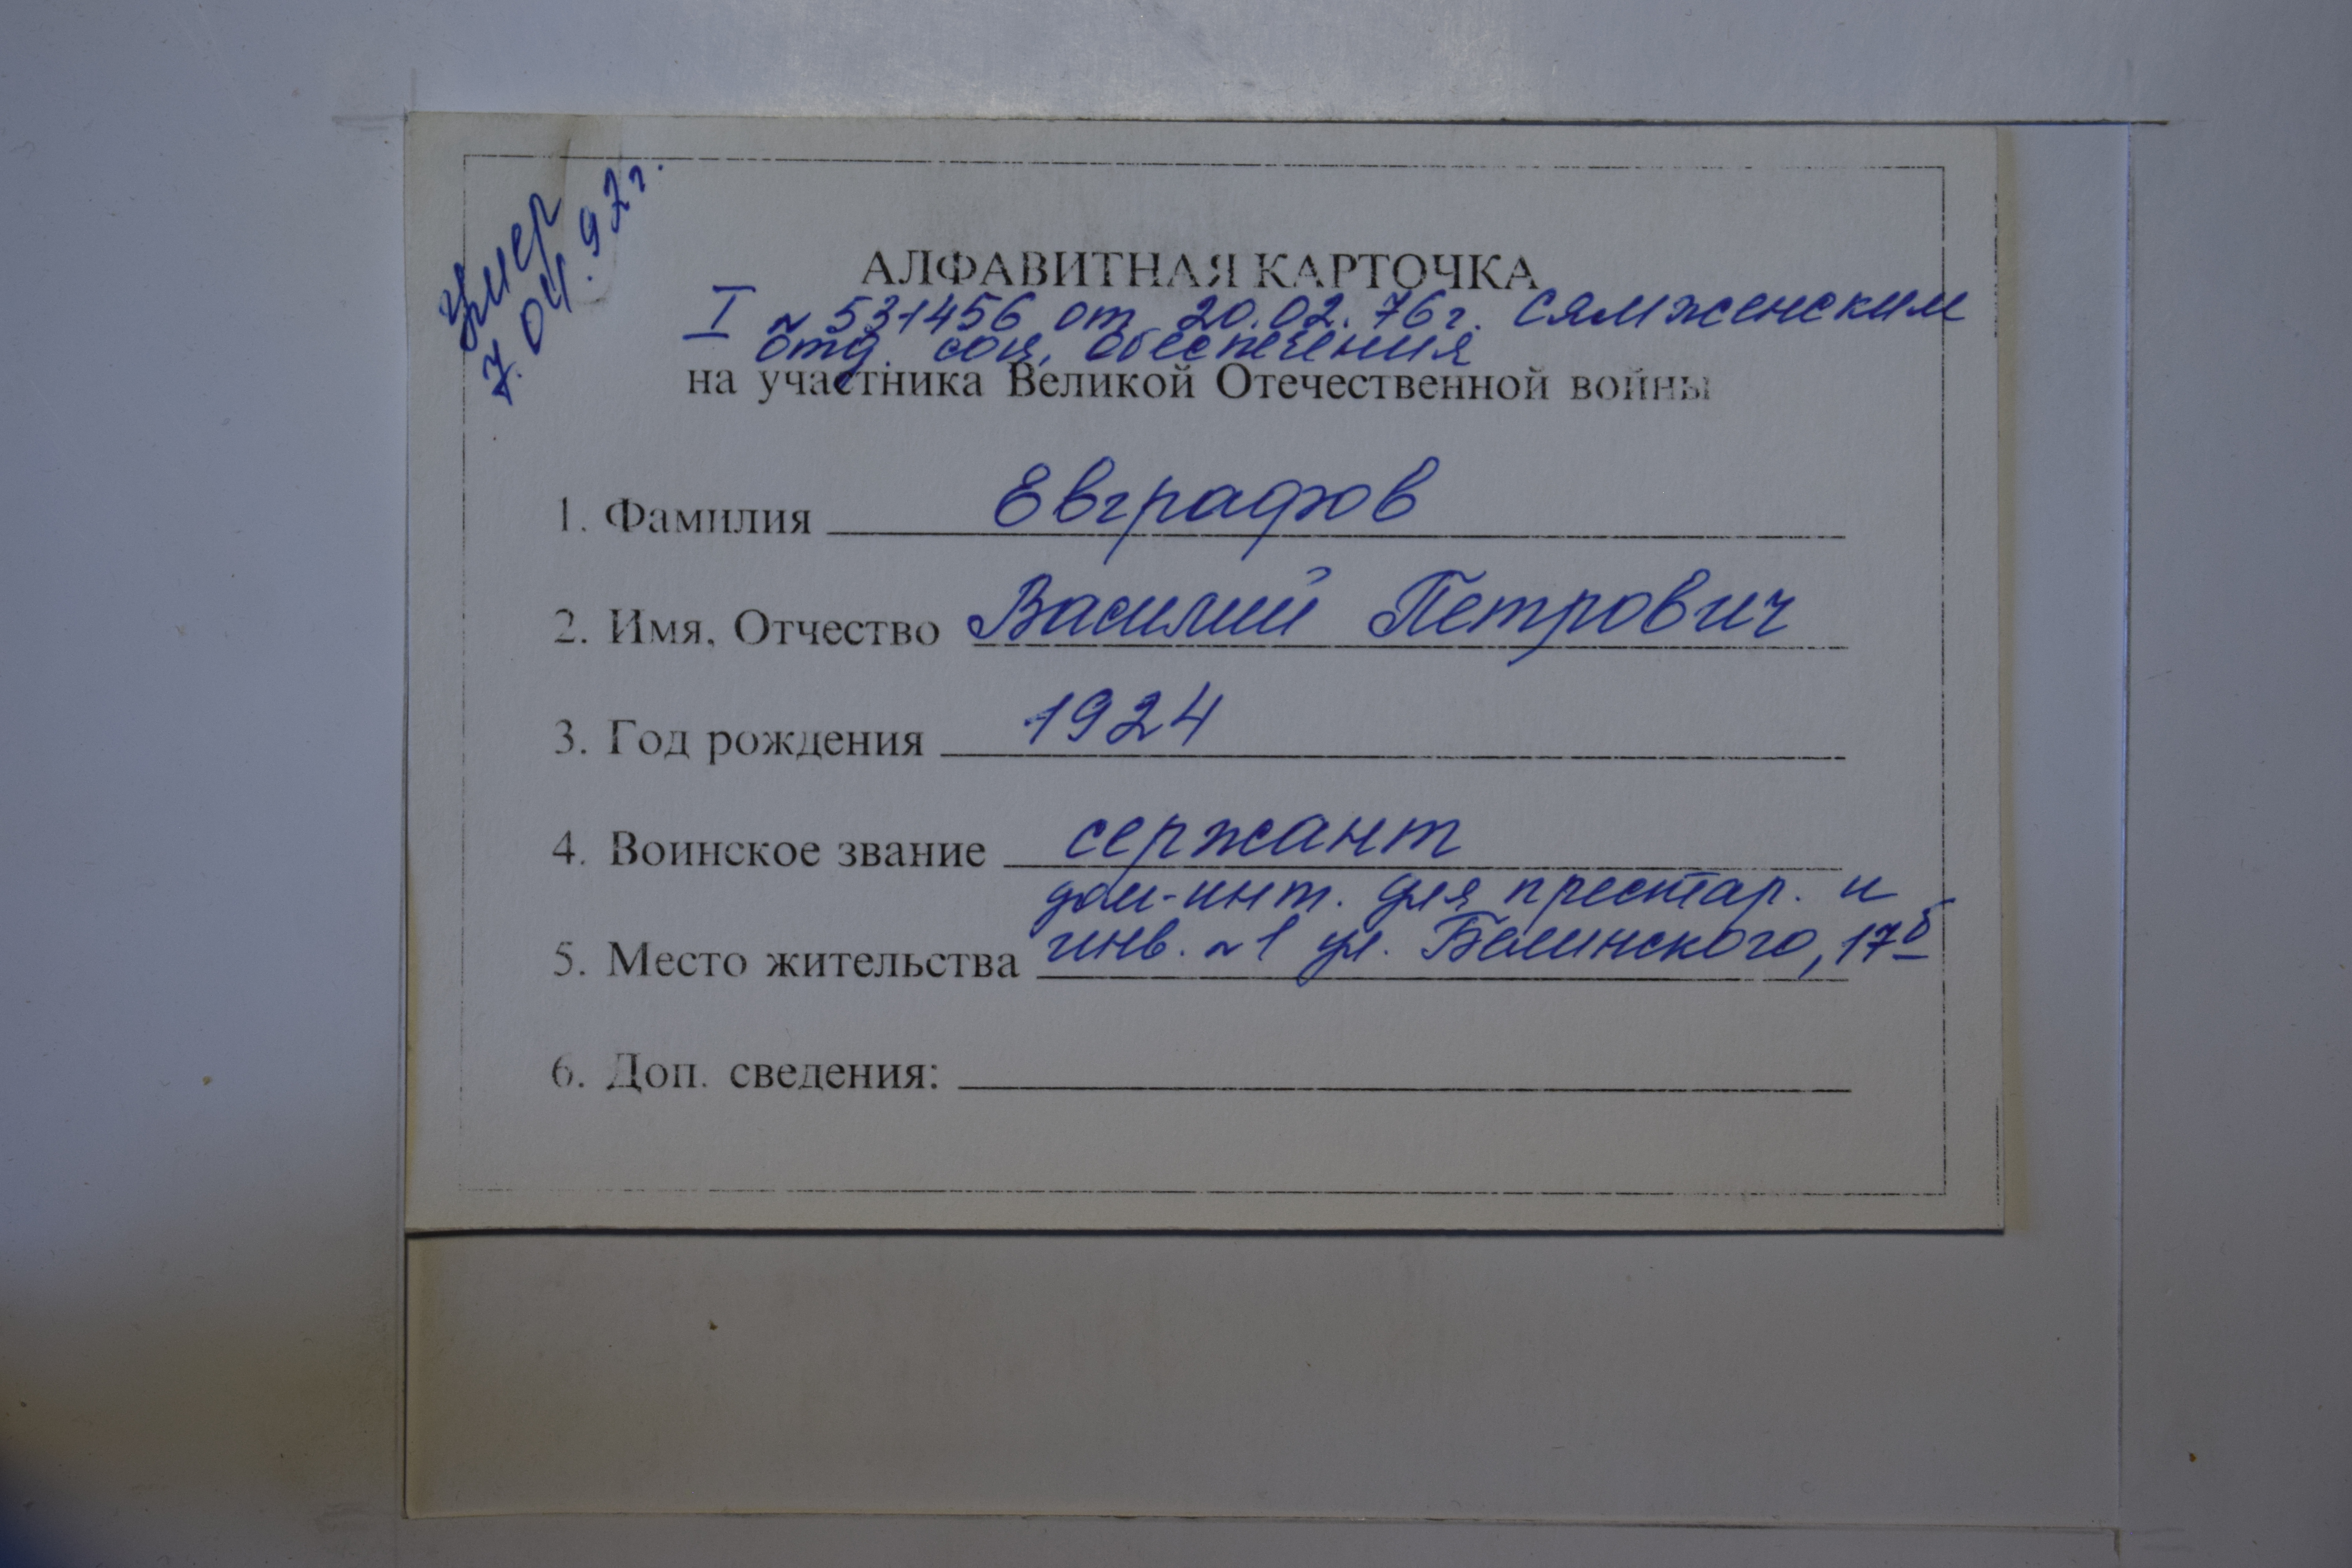 Умер
7.04.97г.
АЛФАВИТНАЯ КАРТОЧКА
I № 531456 от 20.02.76г. Сямженским
отд. соц. обеспечения
на участника Великой Отечественной войны
1. Фамилия Евграфов
2. Имя, Отчество Василий Петрович
3. Год рождения 1924
4. Воинское звание сержант
дом-инт. для престар. и
5. Место жительства инв. №1 ул. Белинского, 17б
6. Доп. сведения: